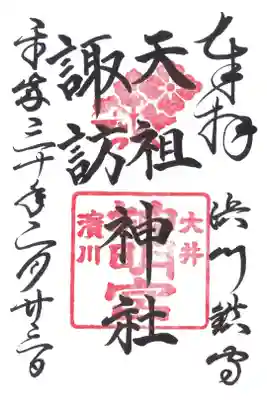 奉拝
浜川鎮守
天祖
諏訪
神社
大井
神明宮
濱川
平成三十年二月廿三日